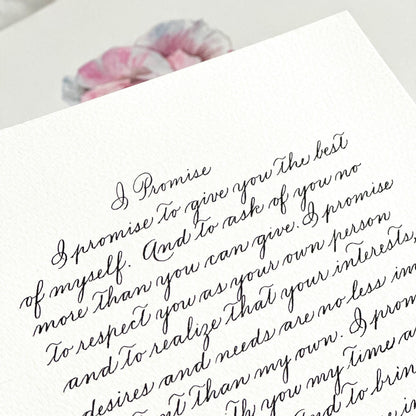 I Promise
I promise to give you the best
of myself. And to ask of you no
more than you can give. I promise
to respect you as your own person
and to realize that your interests,
desires and needs are no less im
than my own. I prom
you my time a
And to brin